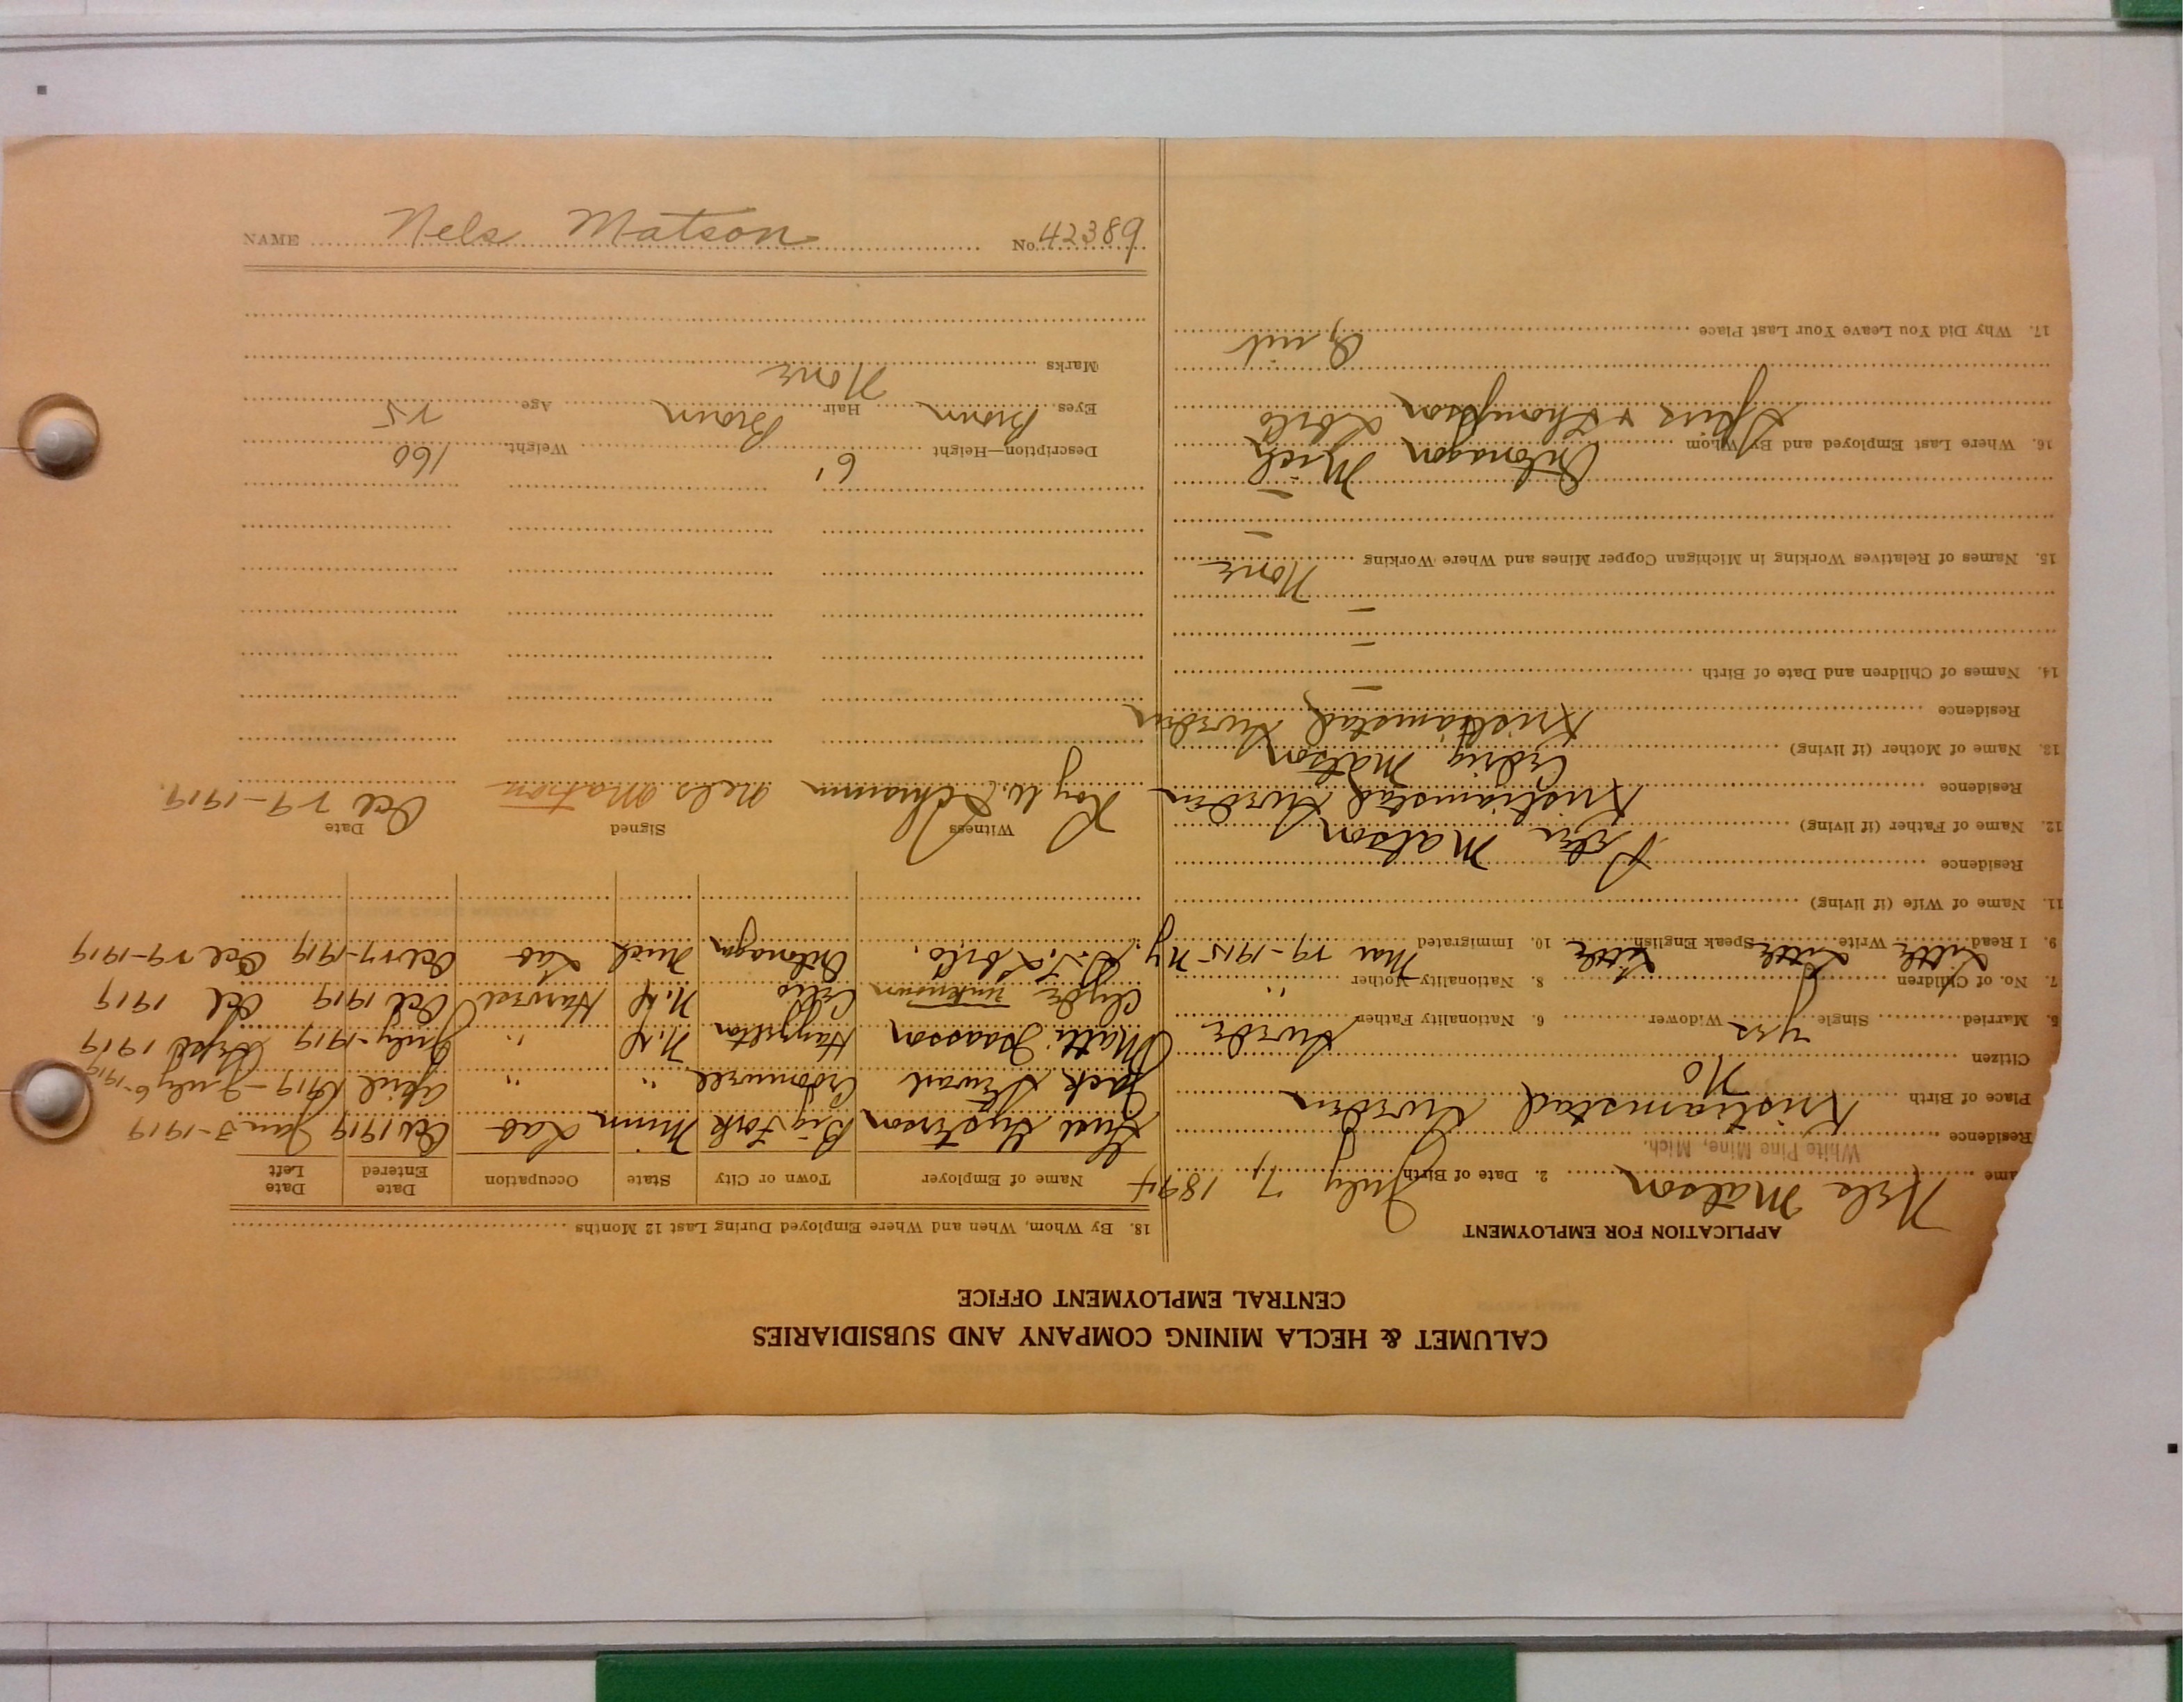 CALUMET & HECLA MINING COMPANY AND SUBSIDIARIES
CENTRAL EMPLOYMENT OFFICE
APPLICATION FOR EMPLOYMENT
ame Nels Matson 2. Date of Birth July 7, 1894
Residence White Pine Mine, Mich.
Place of Birth Kristianstad Sweden
Citizen No
5. Married Single yes Widower 6. Nationality Father Swede
7. No. of Children 8. Nationality Mother "
9. I Read Little Write Little Speak English Little 10. Immigrated Mar 29-1915 N.Y.
11. Name of Wife (if living)
Residence
12. Name of Father (if living) Matson
Residence Kristianstad Sweden
13. Name of Mother (if living) Matson
Residence Kristianstad Sweden
14. Names of Children and Date of Birth —
—
—
15. Names of Relatives Working in Michigan Copper Mines and Where Working None
—
—
16. Where Last Employed and By Whom Ontonagon Mich
& Thompson
17. Why Did You Leave Your Last Place Quit
18. By Whom, When and Where Employed During Last 12 Months
Name of Employer Town or City State Occupation Date Entered Date Left
Big Fork Minn Lab 1919 Jan 3-1919
Jack " " April 1919 July 6-1919
Matt Isaacson N.D. " July-1919 1919
Clyde unknown N.D. Harvest Oct 1919 Oct 1919
Ontonagon Mich Lab Oct 27-1919 Oct 29-1919
Witness Signed Date
Roy W. Schramm Nels Matson Oct 29-1919.
Description—Height 6' Weight 160
Eyes Brown Hair Brown Age 25
Marks None
NAME Nels Matson No. 42389